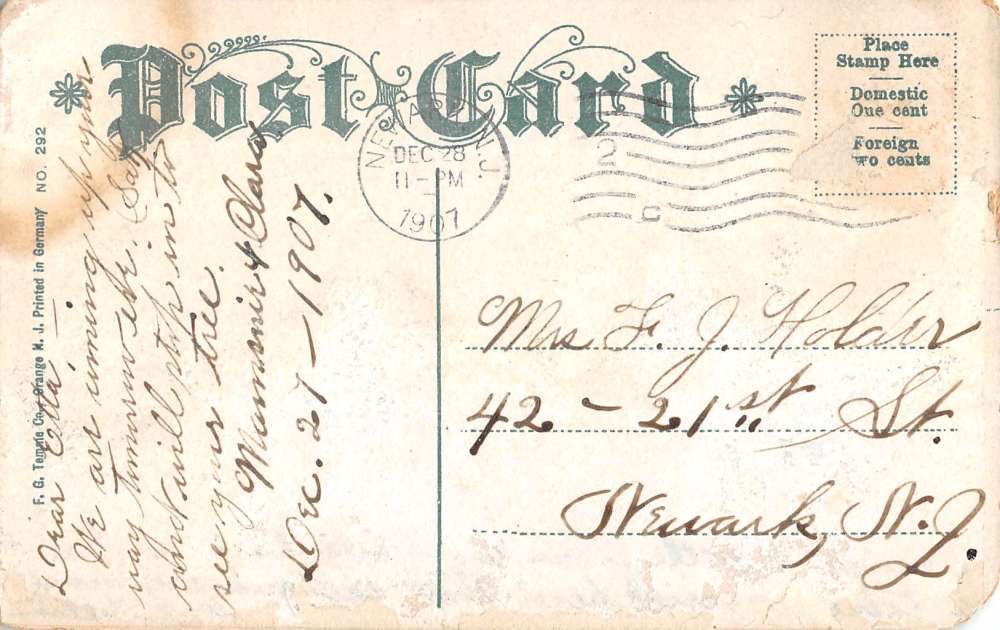 Post Card
Place
Stamp Here
Domestic
One cent
Foreign
Two cents
NEWARK, N.J.
DEC 28
11-PM
1907
2
F. G. Temme Co., Orange N. J. Printed in Germany NO. 292
Dear
We are coming up your
way tomorrow eve. (Sat)
and will stop in to
see your tree.
Mammie & Clara
Dec. 27-1907.
Mrs F. J. Holder
42 - 21st St.
Newark, N.J.